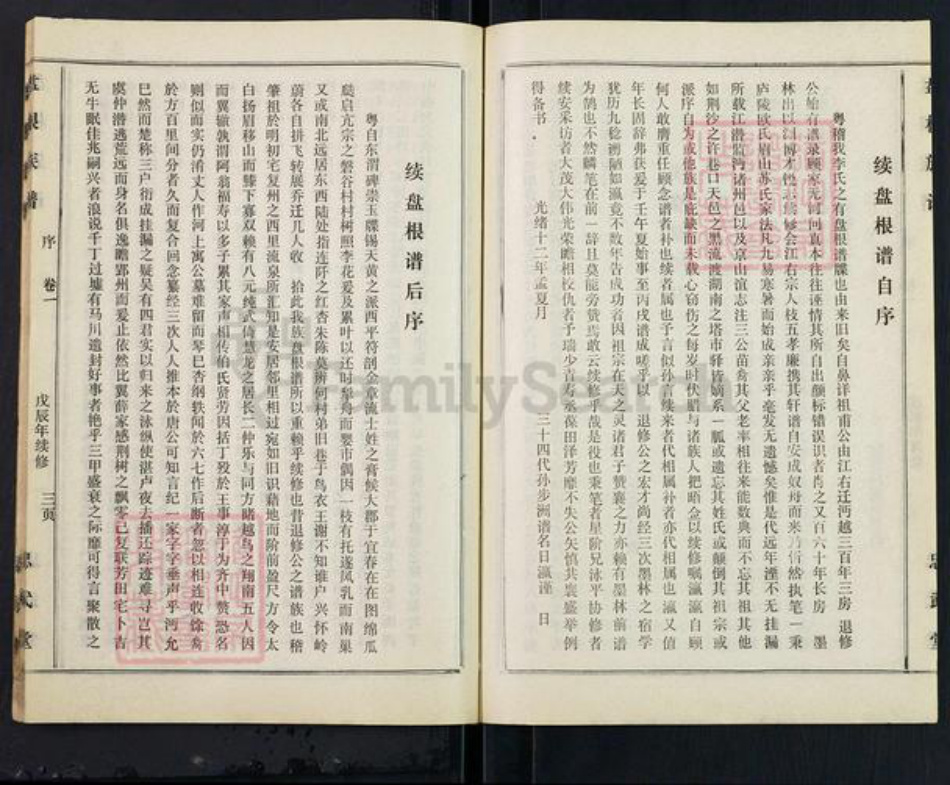 续盘根谱自序
粤稽我李氏之有盘根谱牒也由来旧矣自鼻详祖甫公由江右迁沔越三百年三房 退修
公始有谱录顾家
林出以
庐陵欧氏眉山苏氏家法凡九易寒暑而始成亲亲乎毫发无遗憾矣惟是代远年湮不无挂漏
所载江潜监沔诸州邑以及京山谊志注三公苗裔其父老率相往来能数典而不忘其祖其他
如荆沙之许巷口天邑之黑流渡湖南之塔市驿皆嫡系一脈或遗忘其姓氏或颠倒其祖宗或
派序自为或他族是庇缺而未载心窃伤之每岁时伏腊与诸族人把晤佥以续修嘱瀛瀛自顾
何人敢膺重任顾念谱者补也续者属也予言似孙言续来者代相属补者亦代相属也瀛又值
年长固辞弗获爰于壬午夏始事至丙戌谱成嗟乎以 退修公之宏才尚经三次墨林之宿学
犹历九稔谫陋如瀛竟不数年告成功者因祖宗在天之灵诸君子赞襄之力亦赖有墨林前谱
为鹄也不然麟笔在前一辞且莫能旁赞焉敢云续修乎哉是役也秉笔者星阶兄泳平协修者
续安采访者大茂大伟光荣瞻相校仇者予瑞少青寿丞保田泽芳靡不失公矢慎共襄盛举例
得备书。
光绪十二年孟夏月 三十四代孙步洲谱名日瀛谨 日
续盘根谱后序
粤自东渭碑崇玉牒锡天黄之派西平符剖金章流士姓之膏候大郡于宜春在在图绵瓜
瓞启亢宗之磐谷村村树照李花爰及累叶以还时挈舟而婴市偶因一枝有托遂凤乳而南巢
又或南北远居东西陆处指连阡之红杏朱陈莫辨何村弟旧巷于乌衣王谢不知谁户兴怀岭
蔚各自拼飞转展乔迁几人收 拾此我族盘根谱所以重赖乎续修也昔退修公之谱族也稽
肇祖於明初宅复州之西里流泉所汇知是安居邻里相过宛如旧识藉地而阶前盈尺方令太
白扬眉移山而膝下寡双赖有八元纯式倚慧龙之居长二仲乐与同方睹越鸟之翔南五人因
而翼辙孰谓阿翁福寿以多子累其家声相传伯氏贤劳因括丁役於王事淳于为齐中赘恐名
则似而实仍淆丈人作河上寓公墓难留而琴已杳纲轶闻於六七作后断者忽以相连收馀裔
於方百里间分者久而复合回念纂经三次人人推本於唐公可知言纪一家字字垂声乎沔允
巳然而楚称三户衍成挂漏之疑吴有四君实以归来之泳纵使湛卢夜去播迁踪迹难寻岂其
虞仲潜逃荒远而身名俱逸瞻郢州而爰止依然比翼薛家感荆树之飘零己复联芳田宅卜吉
无牛眠佳兆嗣兴者浪说千丁过墟有马川遗封好事者艳乎三甲盛衰之际靡可得言聚散之
盘根族谱
序 卷一
戊辰年续修 三页
忠武堂
FamilySearch